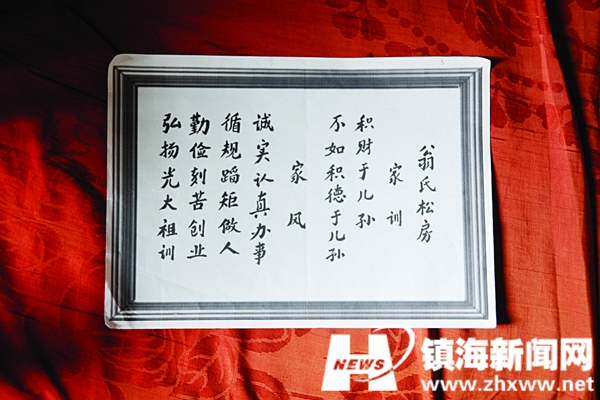 翁氏松房
家训
积财于儿孙
不如积德于儿孙
家风
诚实认真办事
循规蹈矩做人
勤俭刻苦创业
弘扬光大祖训
H NEWS
镇海新闻网
www.zhxww.net